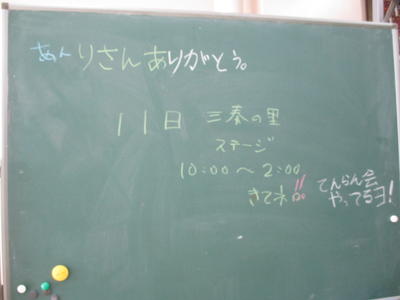 あんりさんありがとう。
11日 三秦の里
ステージ
10:00〜2:00
きてネ!!
てんらん会
やってるヨ!